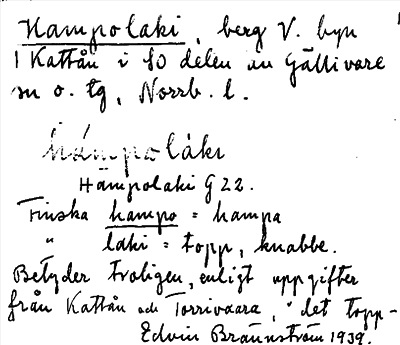 Hampolaki, berg V. byn
1 Kattån i SO delen av Gällivare
sn o. tg, Norrb. l.
hámpoláki
Hämpolaki G 22.
Finska hampo = hampa
" laki = topp, knabbe.
Betyder troligen, enligt uppgifter
från Kattån och Torrivaara, "det topp-
Edvin Brännström 1939.